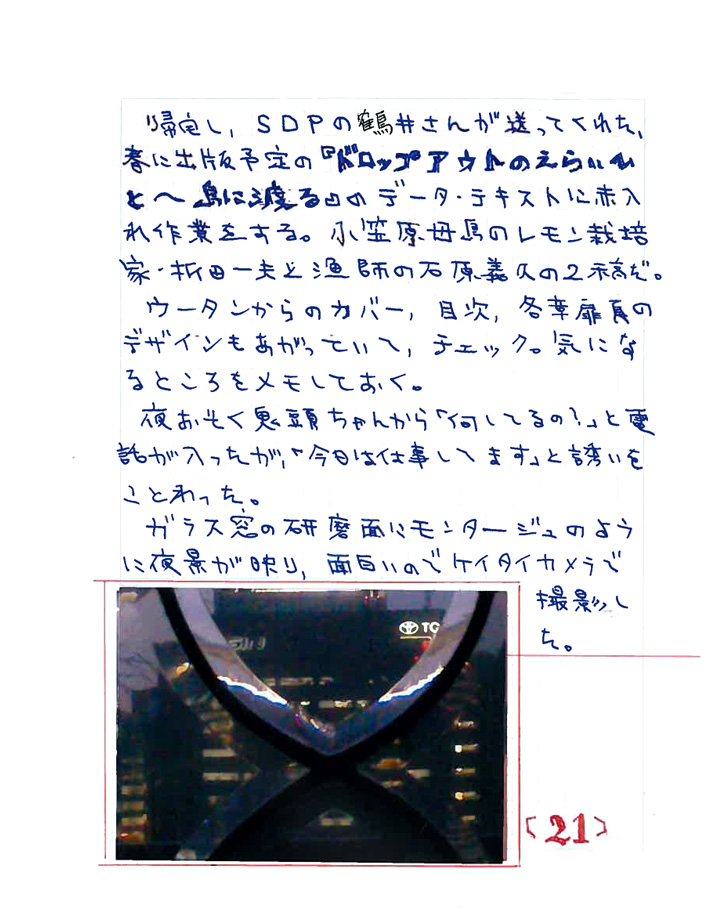 帰宅し、SDPの鶴井さんが送ってくれた、
春に出版予定の『ドロップアウトのえらいひ
と〜島に渡る』のデータ・テキストに赤入
れ作業をする。小笠原母島のレモン栽培
家・折田一夫と漁師の石原義久の2稿だ。
ウータンからのカバー、目次、各章扉頁の
デザインもあがっていて、チェック。気にな
るところをメモしておく。
夜おそく鬼頭ちゃんから「何してるの?」と電
話が入ったが、「今日は仕事してます」と誘いを
ことわった。
ガラス窓の研磨面にモンタージュのよう
に夜景が映り、面白いのでケイタイカメラで
撮影し
た。
[21]